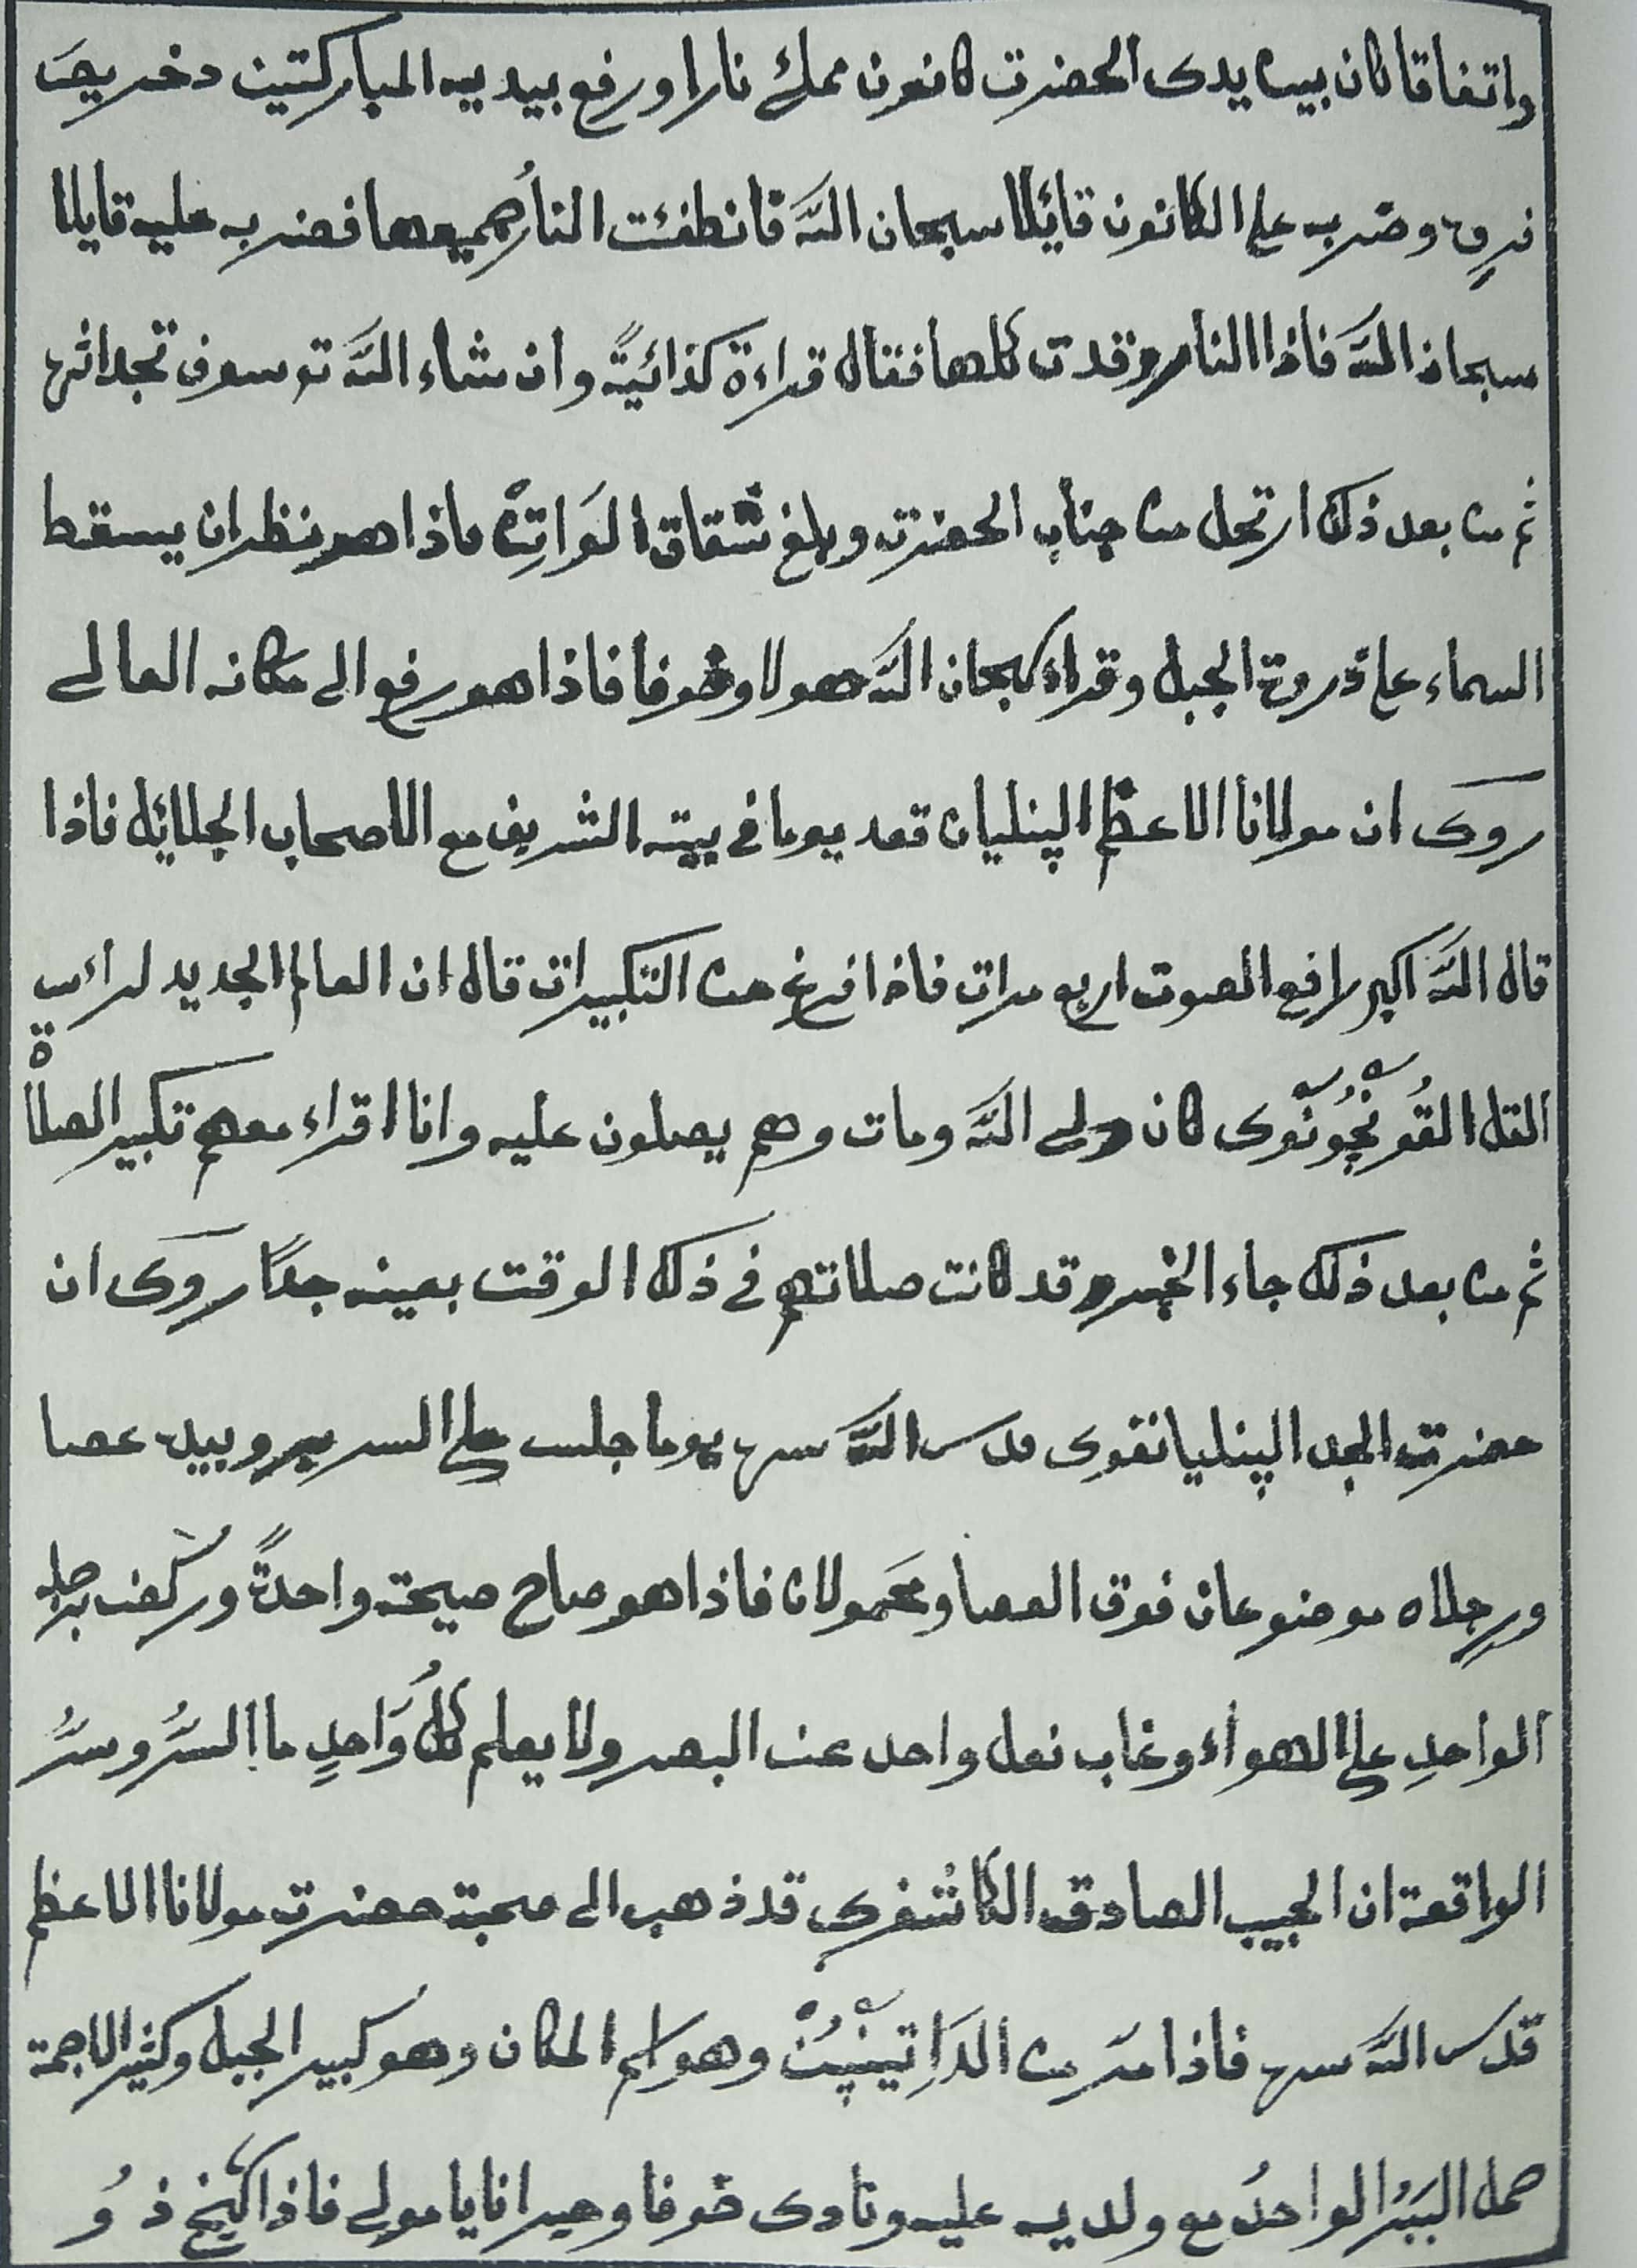 واتفاقا كان بين يدى الحضرت كانون مملئ نارا ورفع بيديه المباركتين
نرٍة وضرب على الكانون قائلا سبحان الله فانطفئت النار جميعها فضربه عليه قايلا
سبحان الله فاذا النار وقدت كلها فقال قراءة كذائيةً وان شاء الله تو سوف تجد اثرها
ثم من بعد ذلك ارتحل من جناب الحضرت وبلغ شقاق الوَاتِنْ ماذا هو نظر ان يسقط
السماء على ذروة الجبل وقراء سبحان الله هولا وخوفا فاذا هو رفع الى مكانه العالى
روى ان مولانا الاعظم الپنليان قعد يوما فى بيته الشريف مع الاصحاب الجلائل فاذا
قال الله اكبر رافع الصوت اربع مرات فاذا فرغ من التكبيرات قال ان العالم الجديد لرائس
القل القُونْجُونْوى كان ولى الله ومات وهم يصلون عليه وانا اقراء معهم تكبير الصلاة
ثم من بعد ذلك جاء الخبر وقد كانت صلاتهم فى ذلك الوقت بعينه جدًا روى ان
حضرت الجد الپنليانقوى قدس الله سره يوما جلس على السرير وبيده عصا
ورجلاه موضوعان فوق العصا ومَحمولان فاذا هو صاح صيحة واحدةً وركض برجله
الواحدِ على الهواء وغاب نعل واحد عن البصر ولا يعلم كلُّ وَاحدٍ ما السرُّ وسرُّ
الواقعة ان الحبيب الصادق الكاشغرى قد ذهب الى صحبة حضرت مولانا الاعظم
قدس الله سره فاذا مرّ من الدَاتينْپُنْ وهو اسم المكان وهو كبير الجبل وكثير الاجمة
حمل البَبَرُ الواحدُ مع ولديه عليه ونادى خوفا وحيرانا يا مولى فاذا